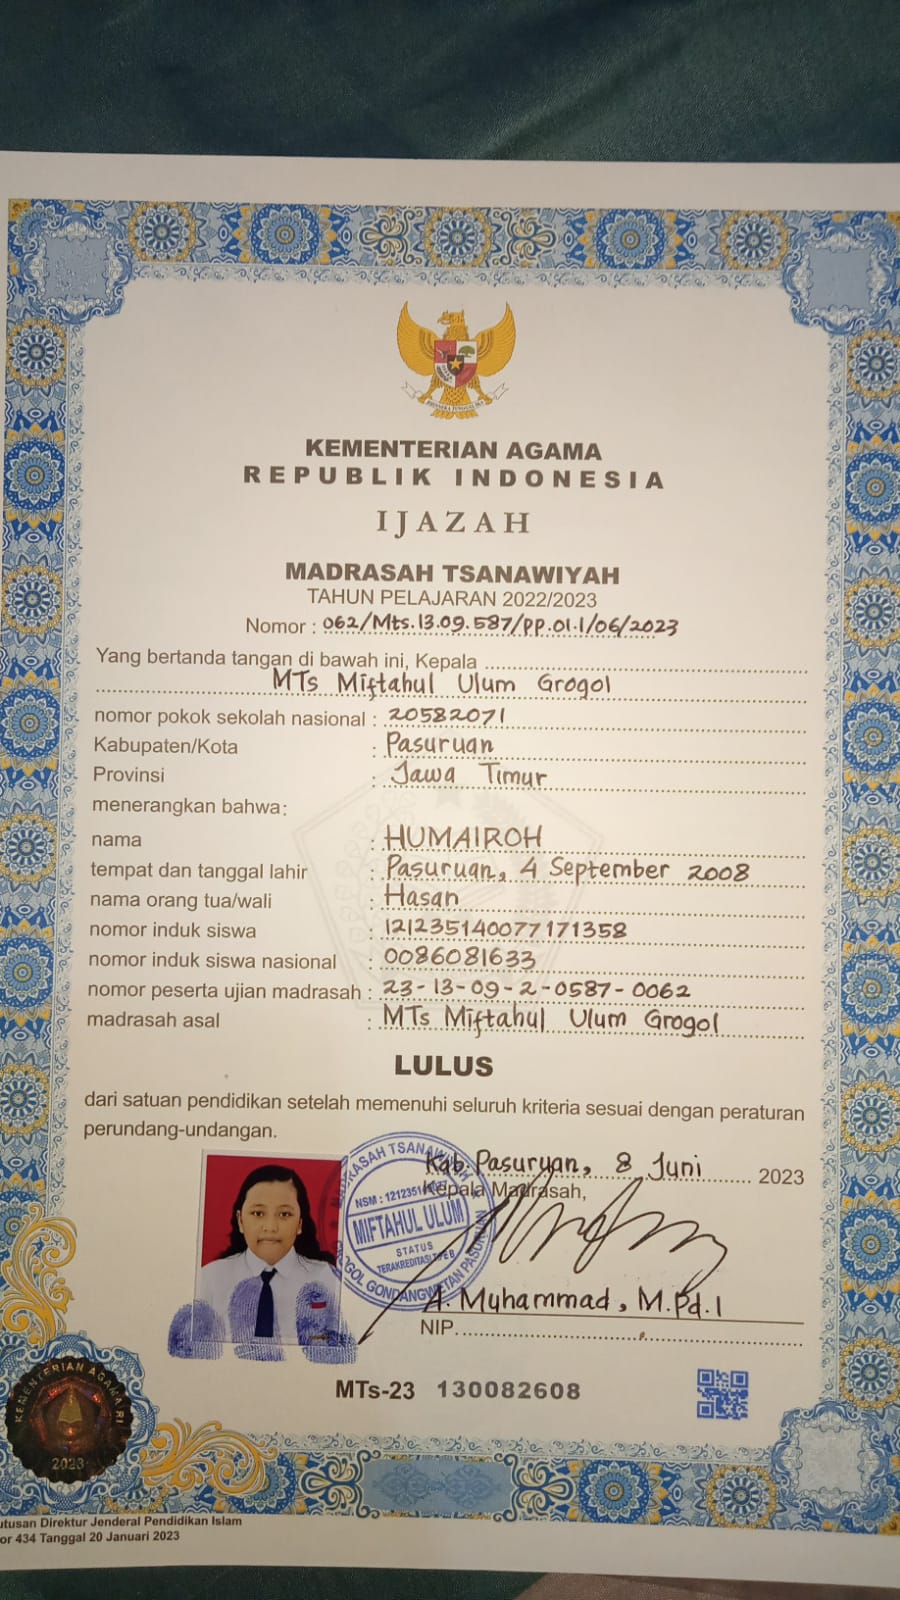 KEMENTERIAN AGAMA
REPUBLIK INDONESIA
IJAZAH
MADRASAH TSANAWIYAH
TAHUN PELAJARAN 2022/2023
Nomor : 062/Mts.13.09.587/PP.01.1/06/2023
Yang bertanda tangan di bawah ini, Kepala
MTs Miftahul Ulum Grogol
nomor pokok sekolah nasional : 20582071
Kabupaten/Kota : Pasuruan
Provinsi : Jawa Timur
menerangkan bahwa:
nama : HUMAIROH
tempat dan tanggal lahir : Pasuruan, 4 September 2008
nama orang tua/wali : Hasan
nomor induk siswa : 121235140077171358
nomor induk siswa nasional : 0086081633
nomor peserta ujian madrasah : 23-13-09-2-0587-0062
madrasah asal : MTs Miftahul Ulum Grogol
LULUS
dari satuan pendidikan setelah memenuhi seluruh kriteria sesuai dengan peraturan
perundang-undangan.
Kab. Pasuruan, 8 Juni 2023
Kepala Madrasah,
MADRASAH TSANAWIYAH
NSM : 1212351
MIFTAHUL ULUM
STATUS
TERAKREDITASI
GROGOL GONDANGWETAN PASURUAN
A. Muhammad, M.Pd.I
NIP.
MTs-23 130082608
KEMENTERIAN AGAMA RI
2023
utusan Direktur Jenderal Pendidikan Islam
or 434 Tanggal 20 Januari 2023